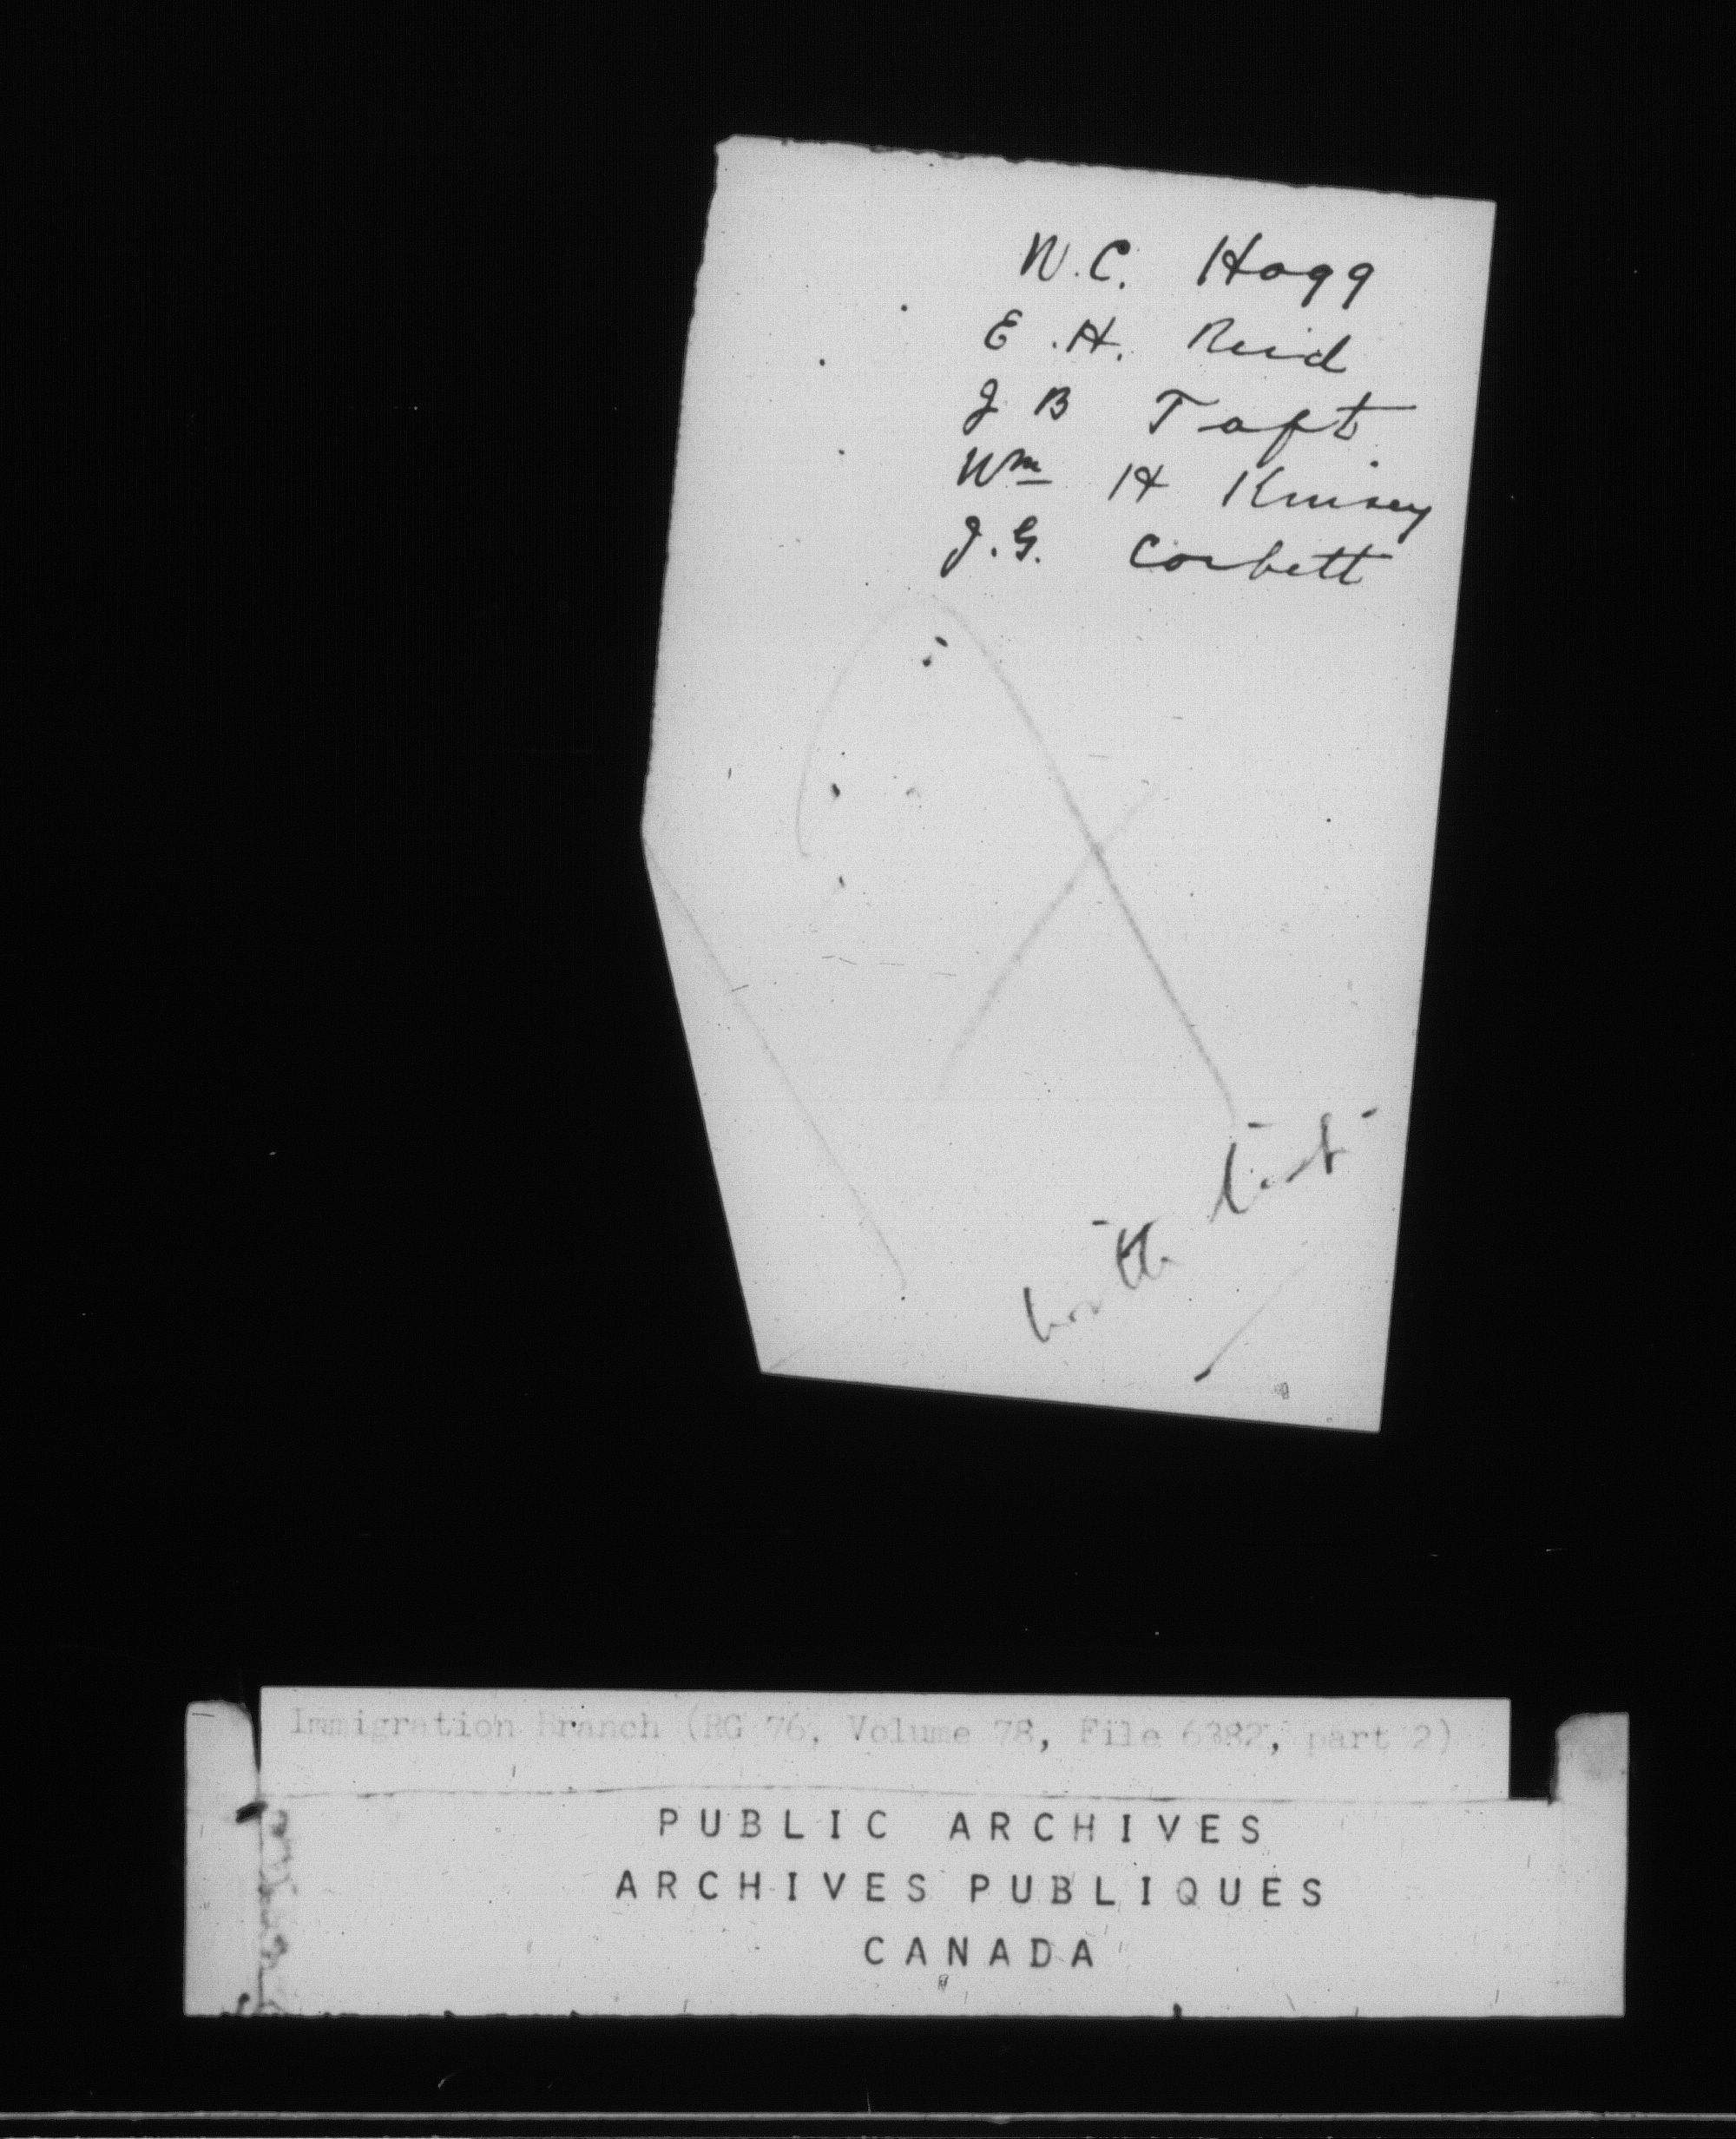 W.C. Hogg
E.H. Reid
J B Taft
Wm H Kinsey
J.G. Corbett
with list
Immigration Branch (RG 76, Volume 78, File 6382, part 2)
PUBLIC ARCHIVES
ARCHIVES PUBLIQUES
CANADA